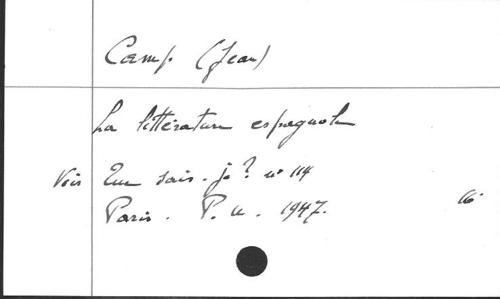 Camp (Jean)
La littérature espagnole
Voir Que sais-je? n° 114
Paris. P.U. 1947.